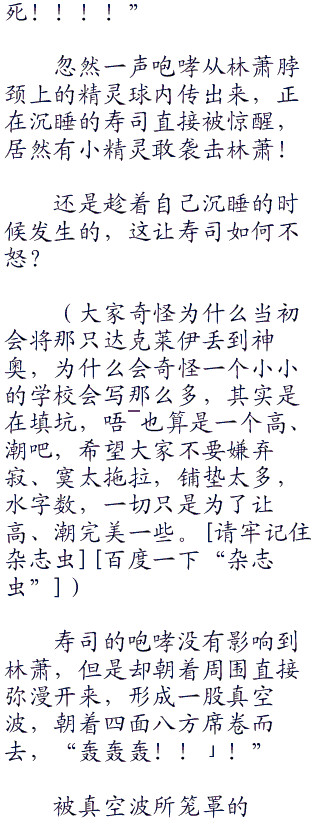 死！！！！”
忽然一声咆哮从林萧脖
颈上的精灵球内传出来，正
在沉睡的寿司直接被惊醒，
居然有小精灵敢袭击林萧！
还是趁着自己沉睡的时
候发生的，这让寿司如何不
怒？
（大家奇怪为什么当初
会将那只达克莱伊丢到神
奥，为什么会奇怪一个小小
的学校会写那么多，其实是
在填坑，唔¯也算是一个高、
潮吧，希望大家不要嫌弃
寂、寞太拖拉，铺垫太多，
水字数，一切只是为了让
高、潮完美一些。[请牢记住
杂志虫][百度一下“杂志
虫”]）
寿司的咆哮没有影响到
林萧，但是却朝着周围直接
弥漫开来，形成一股真空
波，朝着四面八方席卷而
去，“轰轰轰！！」！”
被真空波所笼罩的